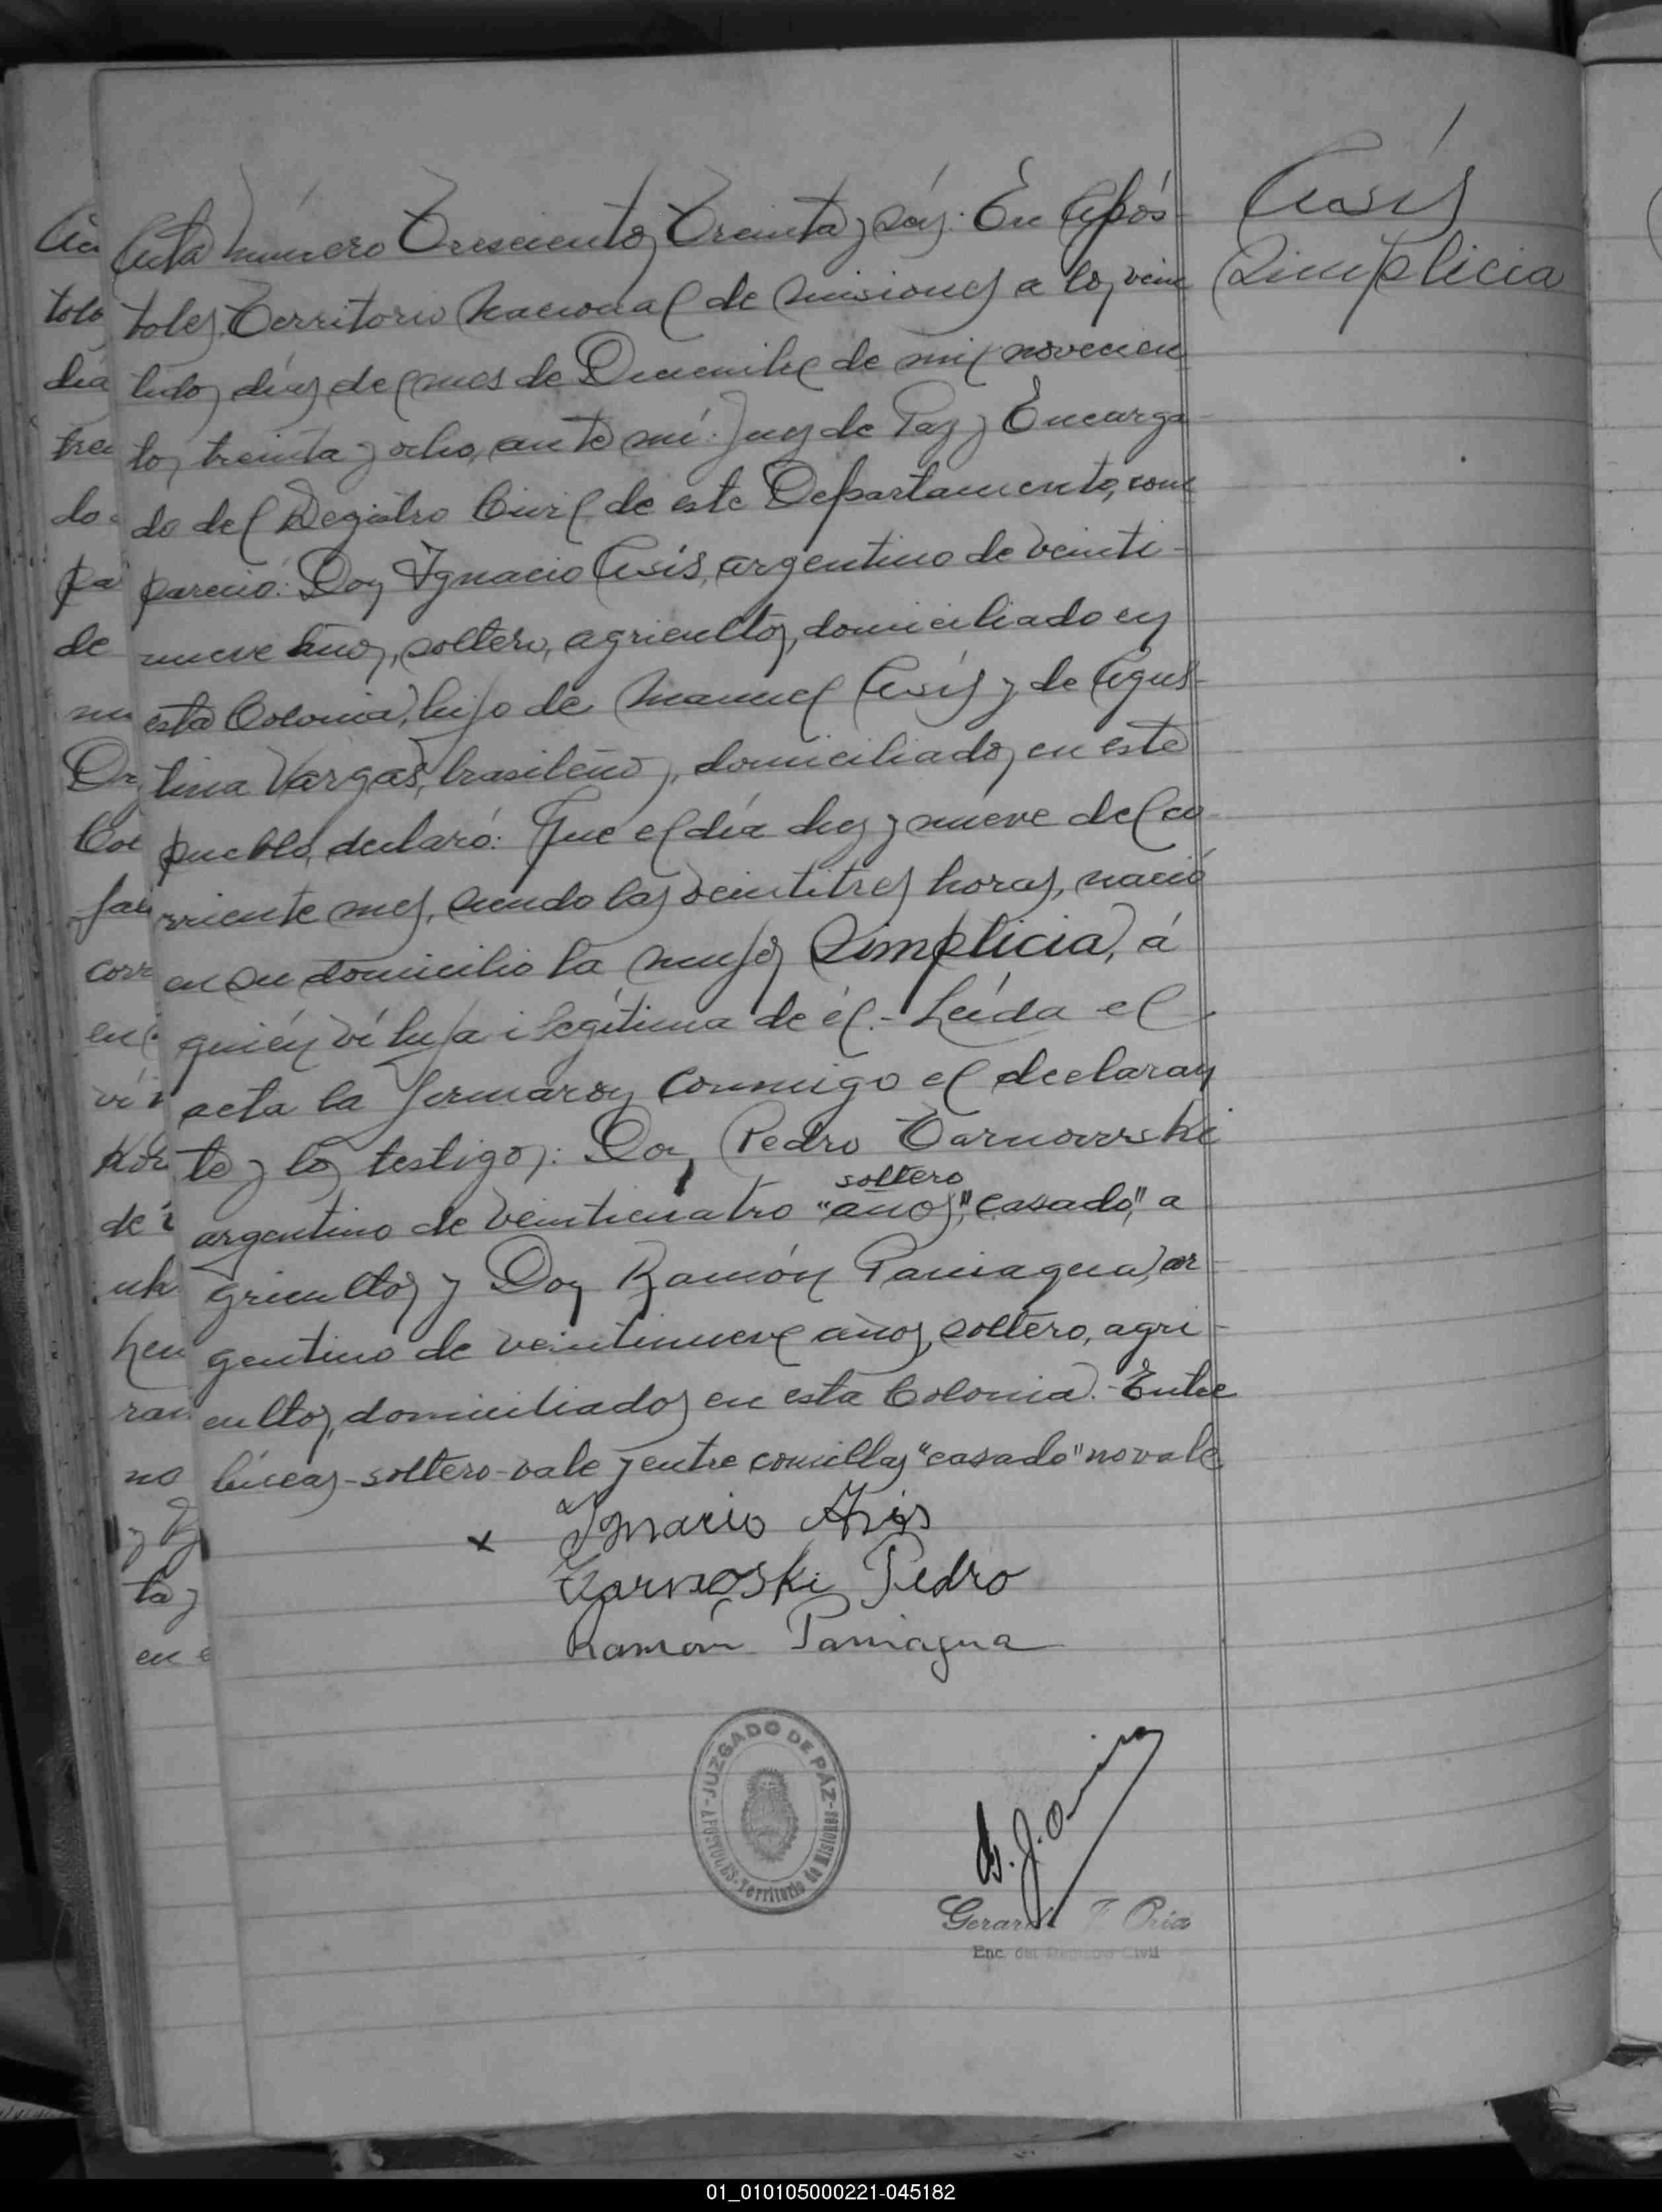 Asís
Simplicia
Acta número Trescientos Treinta y seis: En Após-
toles, Territorio Nacional de Misiones a los vein
tidos días del mes de Diciembre de mil novecien
tos treinta y ocho, ante mí: Juez de Paz y Encarga
do del Registro Civil de este Departamento, com
pareció: Don Ignacio Asís, argentino de veinti-
nueve años, soltero, agricultor, domiciliado en
esta Colonia, hijo de Manuel Asís y de Agus-
tina Vargas, brasileños, domiciliados en este
pueblo, declaró: Que el día diez y nueve del co-
rriente mes, siendo las veintitres horas, nació
en su domicilio la mujer Simplicia, á
quién ví hija ilegítima de él.- Leída el
acta la firmaron conmigo el declaran
te y los testigos: Don Pedro Tarnowski
soltero
argentino de veinticuatro "años," "casado," a
gricultor y Don Ramón Paniagua, ar-
gentino de veintinueve años, soltero, agri-
cultor, domiciliados en esta Colonia.- Entre
líneas-soltero-vale y entre comillas "casado" no vale
x Ignacio Asis
Tarnoski Pedro
Ramón Paniagua
JUZGADO DE PÁZ
APOSTOLES-Territorio de Misiones
Enc. del Registro Civil
01_010105000221-045182